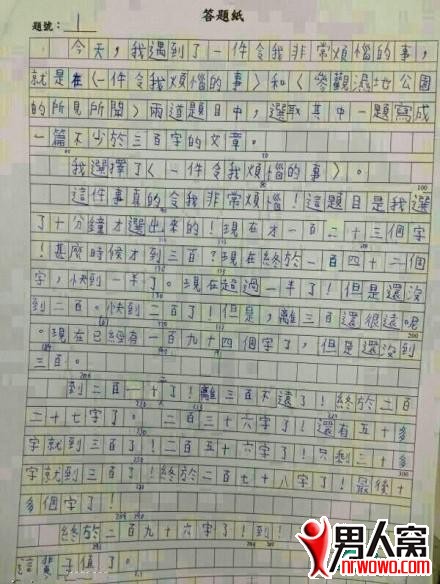 答題紙
題號:1
今天,我遇到了一件令我非常煩惱的事,
就是在〈一件令我煩惱的事〉和〈參觀濕地公園
的所見所聞〉兩道題目中,選取其中一題寫成
一篇不少於三百字的文章。
我選擇了〈一件令我煩惱的事〉。
這件事真的令我非常煩惱!這題目是我選
了十分鐘才選出來的!現在才一百二十三個字
!甚麼時候才到三百?現在終於一百四十二個
字,快到一半了。現在超過一半了!但是還沒
到二百。快到二百了!但是,離三百還很遠呢
。現在已經有一百九十四個字了,但是還沒到
三百。
到二百一十了!離三百不遠了!終於二百
二十七字了。二百三十六字了!還有五十多
字就到三百了!二百五十六字了!只剩三十多
字就到三百了!終於二百七十八字了!最後十
多個字了!
終於二百九十六字了!到!
了。
男人窝
nrwowo.com